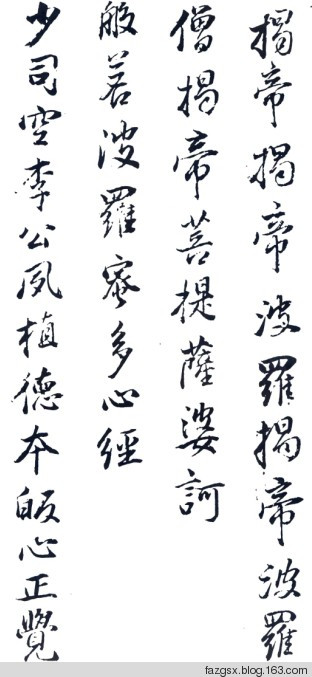 揭帝揭帝波羅揭帝波羅
僧揭帝菩提薩婆訶
般若波羅蜜多心經
少司空李公夙植德本皈心正覺
fazgsx.blog.163.com